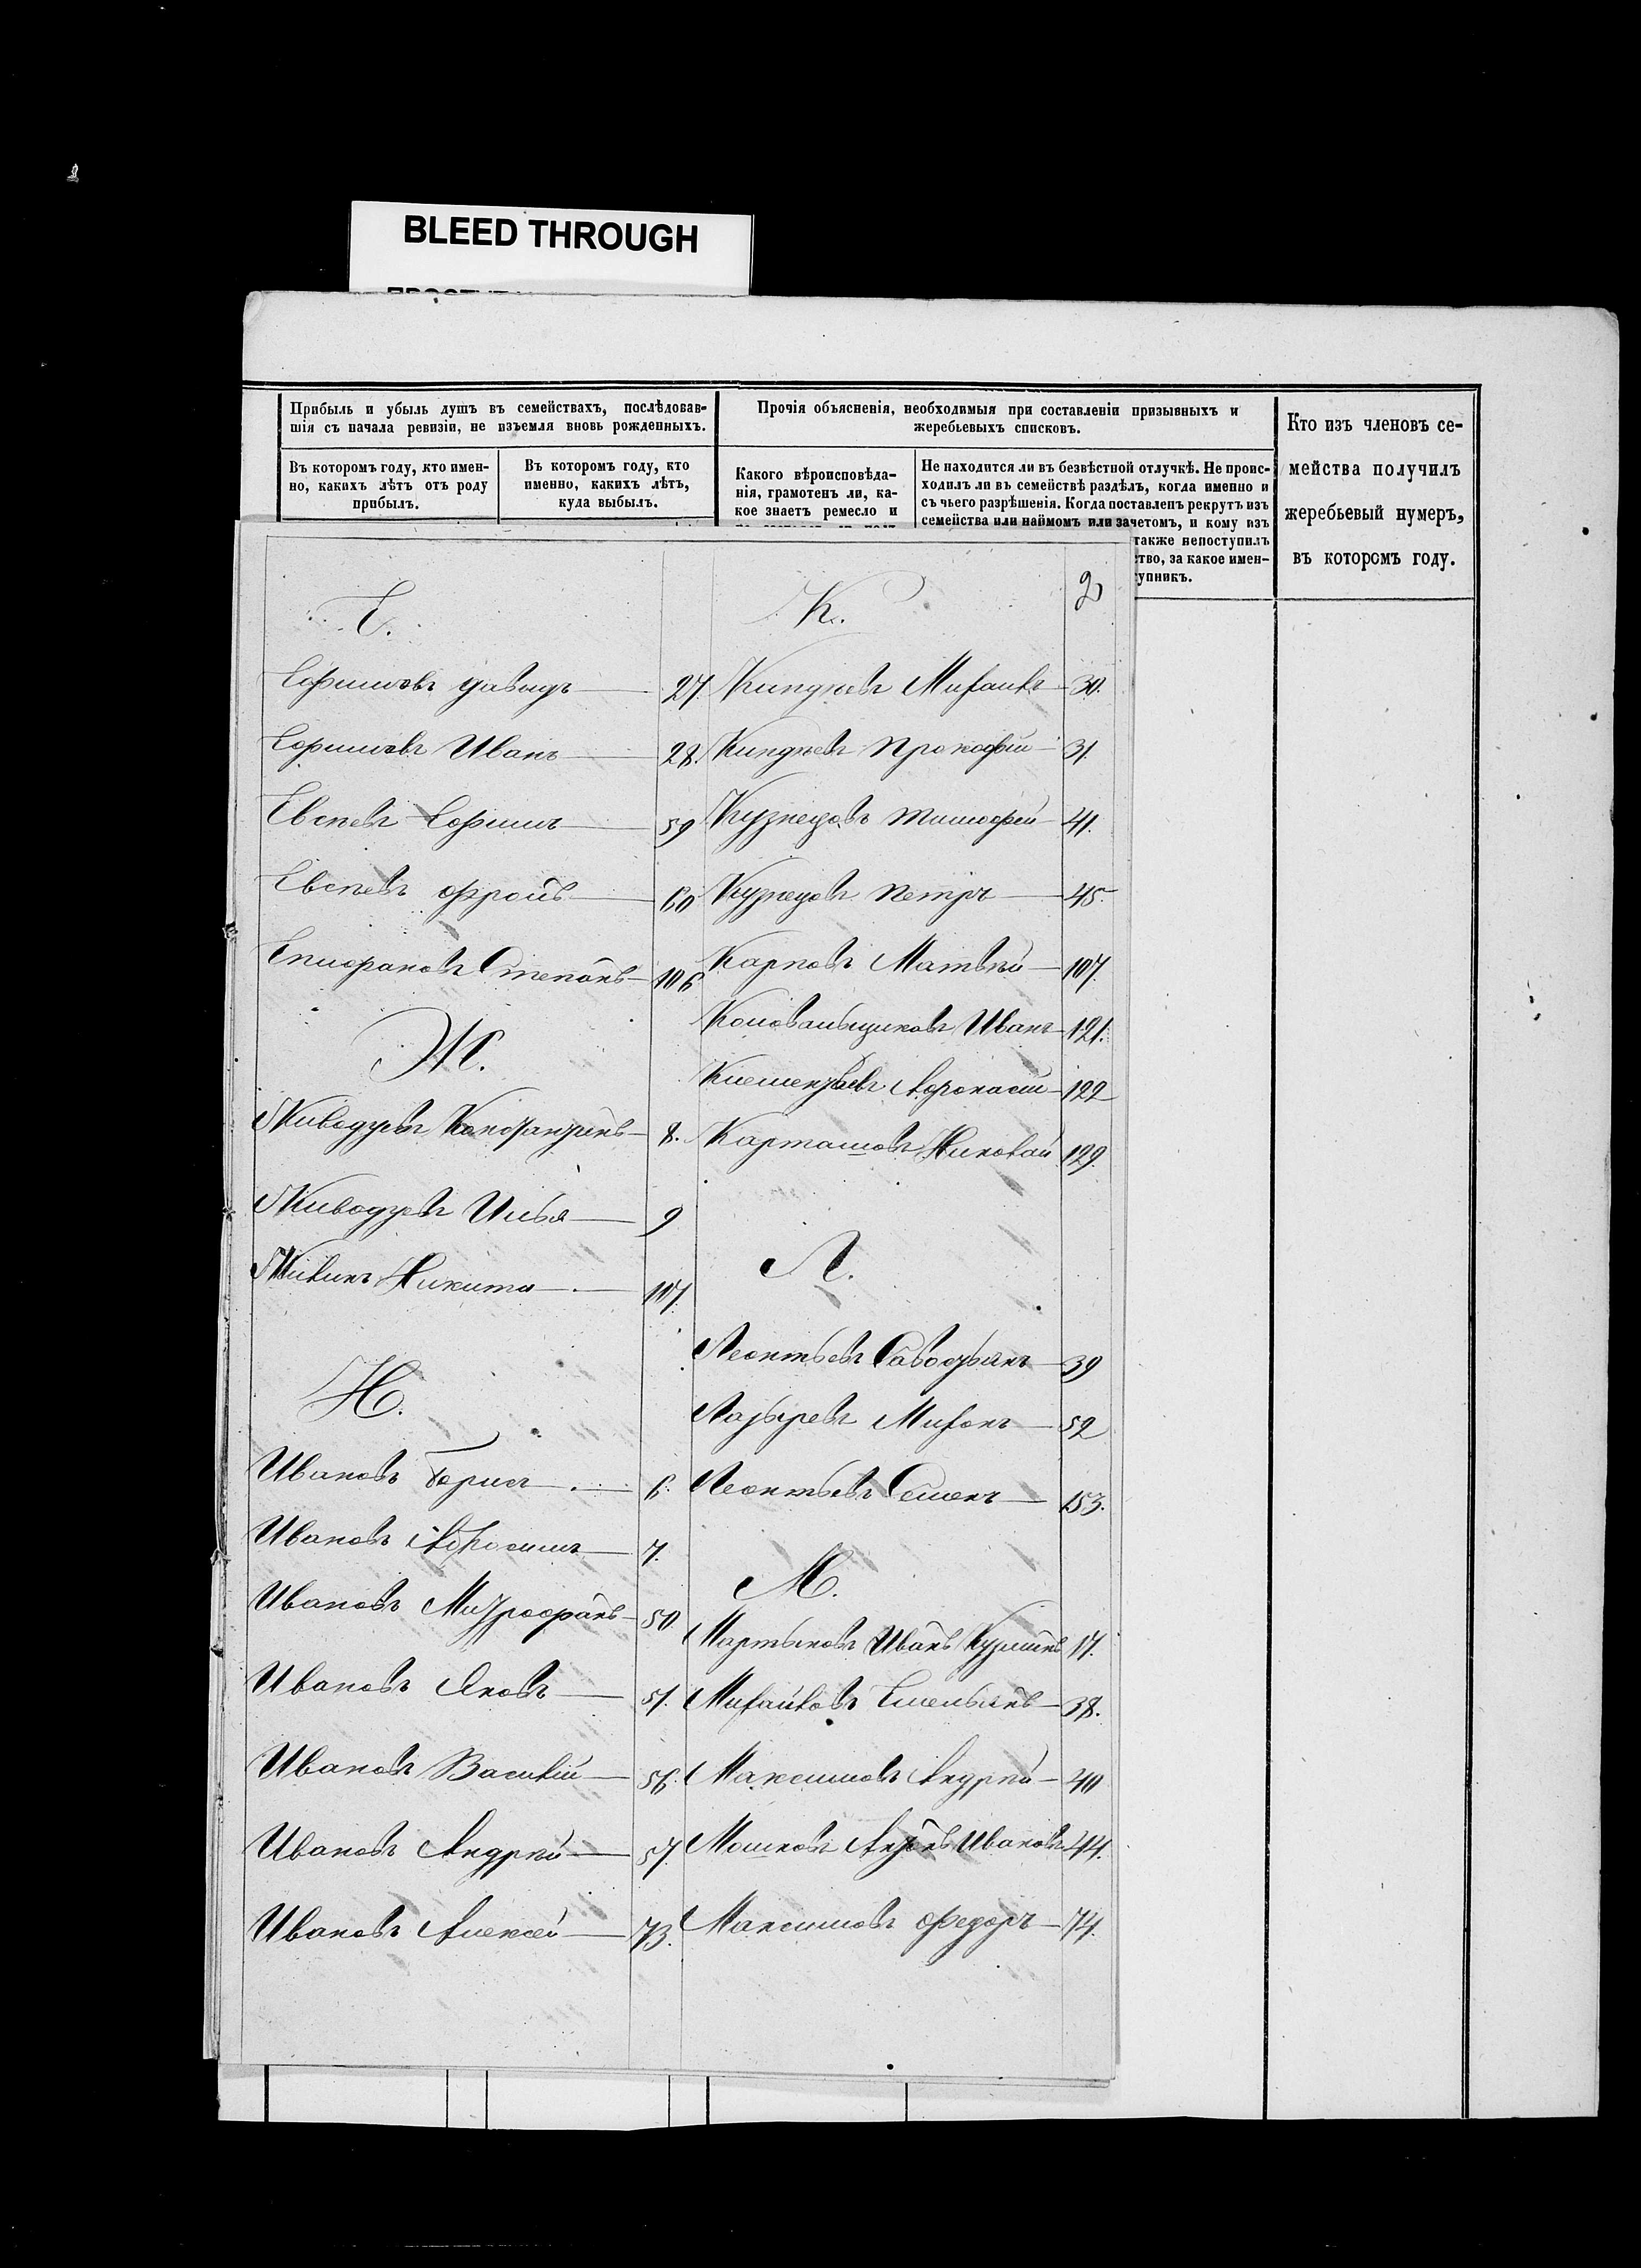 BLEED THROUGH
Прибыль и убыль душъ въ семействахъ, послѣдовав-
шія съ начала ревизіи, не изъемля вновь рожденныхъ.
Въ которомъ году, кто имен-
но, какихъ лѣтъ отъ роду
прибылъ.
Въ которомъ году, кто
именно, какихъ лѣтъ,
куда выбылъ.
Прочія объясненія, необходимыя при составленіи призывныхъ и
жеребьевыхъ списковъ.
Какого вѣроисповѣда-
нія, грамотенъ ли, ка-
кое знаетъ ремесло и
Не находится ли въ безвѣстной отлучкѣ. Не проис-
ходилъ ли въ семействѣ раздѣлъ, когда именно и
съ чьего разрѣшенія. Когда поставленъ рекрутъ изъ
семейства или наймомъ или зачетомъ, и кому изъ
также непоступилъ
ство, за какое имен-
упникъ.
Кто изъ членовъ се-
мейства получилъ
жеребьевый нумеръ,
въ которомъ году.
2
Е.
Ефимовъ Давыдъ 27.
Ефимовъ Иванъ 28.
Евсѣевъ Ефимъ 59
Евсѣевъ Фролъ 60
Епифановъ Степанъ 106
Ж.
Живодуевъ 8.
Живодуевъ Илья 9
Живинъ Никита 107.
И.
Ивановъ Борисъ 6.
Ивановъ 7.
Ивановъ Митрофанъ 50
Ивановъ Яковъ 51.
Ивановъ Василій 56.
Ивановъ Андрѣй 57.
Ивановъ Алексѣй 73.
К.
Киндѣевъ Михаилъ 30.
Киндѣевъ Прокофій 31.
Кузнецовъ Тимофей 41.
Кузнецовъ Петръ 45.
Карповъ Матвѣй 107.
Коновальщиковъ Иванъ 121.
Клементьевъ Афонасій 122
Карташовъ Николай 129.
Л.
Леонтьевъ 39
Лазыревъ Миронъ 52
Леонтьевъ Семенъ 153.
М.
Мартыновъ Иванъ Кузминъ 17.
Михайловъ Емельянъ 38.
Максимовъ Андрѣй 40
Мошковъ Антонъ Ивановъ 44.
Максимовъ Федоръ 74.